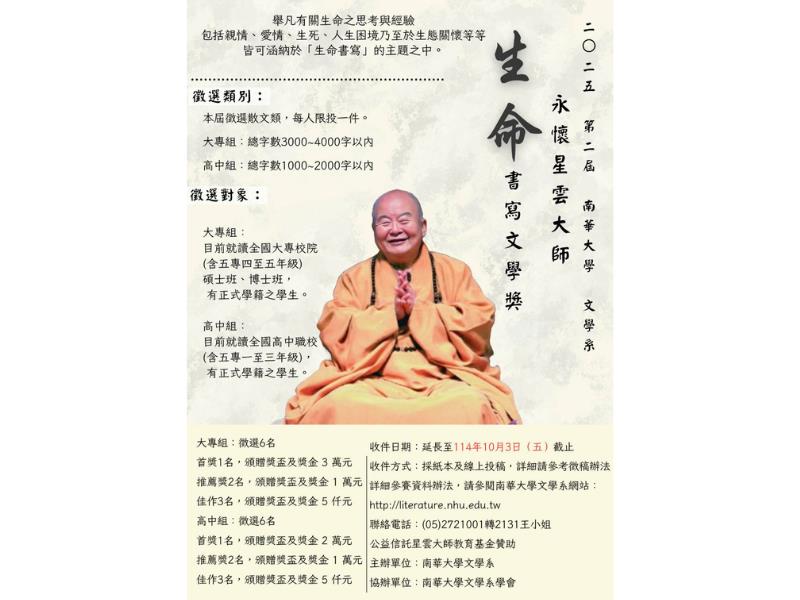 二〇二五 第二屆 南華大學 文學系
永懷星雲大師
生命書寫文學獎
舉凡有關生命之思考與經驗
包括親情、愛情、生死、人生困境乃至於生態關懷等等
皆可涵納於「生命書寫」的主題之中。
徵選類別：
本屆徵選散文類，每人限投一件。
大專組：總字數3000~4000字以內
高中組：總字數1000~2000字以內
徵選對象：
大專組：
目前就讀全國大專校院
(含五專四至五年級)
碩士班、博士班，
有正式學籍之學生。
高中組：
目前就讀全國高中職校
(含五專一至三年級)，
有正式學籍之學生。
大專組：徵選6名
首獎1名，頒贈獎盃及獎金 3 萬元
推薦獎2名，頒贈獎盃及獎金 1 萬元
佳作3名，頒贈獎盃及獎金 5 仟元
高中組：徵選6名
首獎1名，頒贈獎盃及獎金 2 萬元
推薦獎2名，頒贈獎盃及獎金 1 萬元
佳作3名，頒贈獎盃及獎金 5 仟元
收件日期：延長至114年10月3日（五）截止
收件方式：採紙本及線上投稿，詳細請參考徵稿辦法
詳細參賽資料辦法，請參閱南華大學文學系網站：
http://literature.nhu.edu.tw
聯絡電話：(05)2721001轉2131王小姐
公益信託星雲大師教育基金贊助
主辦單位：南華大學文學系
協辦單位：南華大學文學系學會